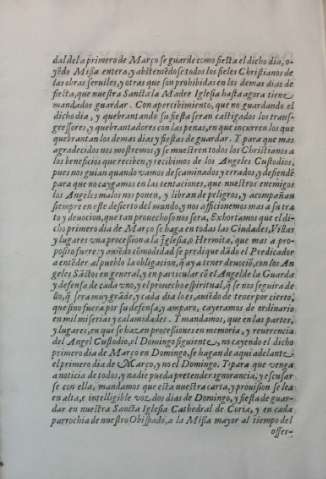 dal dela primero de Março se guarde como fiesta el dicho dia, o-
yẽdo Missa entera, y absteniẽdose todos los fieles Christianos de
las obras seruiles, y otras que son prohibidas en los demas dias de
fiesta, que nuestra Sancta Madre Iglesia hasta agora tiene
mandados guardar. Con apercibimiento, que no guardando el
dicho dia, y quebrantando su fiesta seran castigados los trans-
gressores, y quebrantadores con las penas, en que incurren los que
quebrantan los demas dias y fiestas de guardar. Y para que mas
agradecidos nos mostremos, y se muestren todos los Christianos a
los beneficios que reciben, y recibimos de los Angeles Custodios,
pues nos guian quando vamos descaminados y errados, y defiendẽ
para que no caygamos en las tentaciones, que nuestros enemigos
los Angeles malos nos ponen, y libran de peligros, y acompañan
siempre en este desierto del mundo, y nos aficionemos mas a su tra-
to y deuocion, que tan prouechosa nos sera, Exhortamos que el di-
cho primero dia de Março se haga en todas las Ciudades, Villas
y lugares vna procession a la Iglesia, o Hermita, que mas a pro-
posito fuere, y auiẽdo comodidad se predique dãdo el Predicador
a entẽder al pueblo la obligacion, q̃ ay a tener deuociõ, con los An-
geles Sãctos en general, y en particular cõ el Angel de la Guarda
y defensa de cada vno, y el prouecho espiritual, q̃ se nos seguira de
ello, q̃ sera muy grãde, y cada dia lo es, auiẽdo de tener por cierto,
que sino fuera por su defensa, y amparo, cayeramos de ordinario
en mil miserias y calamidades. Y mandamos, que en las partes,
y lugares, en que se hazen processiones en memoria, y reuerencia
del Angel Custodio, el Domingo siguiente, no cayendo el dicho
primero dia de Março en Domingo, se hagan de aqui adelante
el primero dia de Março, y no el Domingo. Y para que venga
a noticia de todos, y nadie pueda pretender ignorancia, y escusar
se con ella, mandamos que esta nuestra carta, y prouision se lea
en alta, e intelligible voz dos dias de Domingo, y fiesta de guar-
dar en nuestra Sancta Iglesia Cathedral de Coria, y en cada
parrochia de nuestro Obispado, a la Missa mayor al tiempo del
offer-